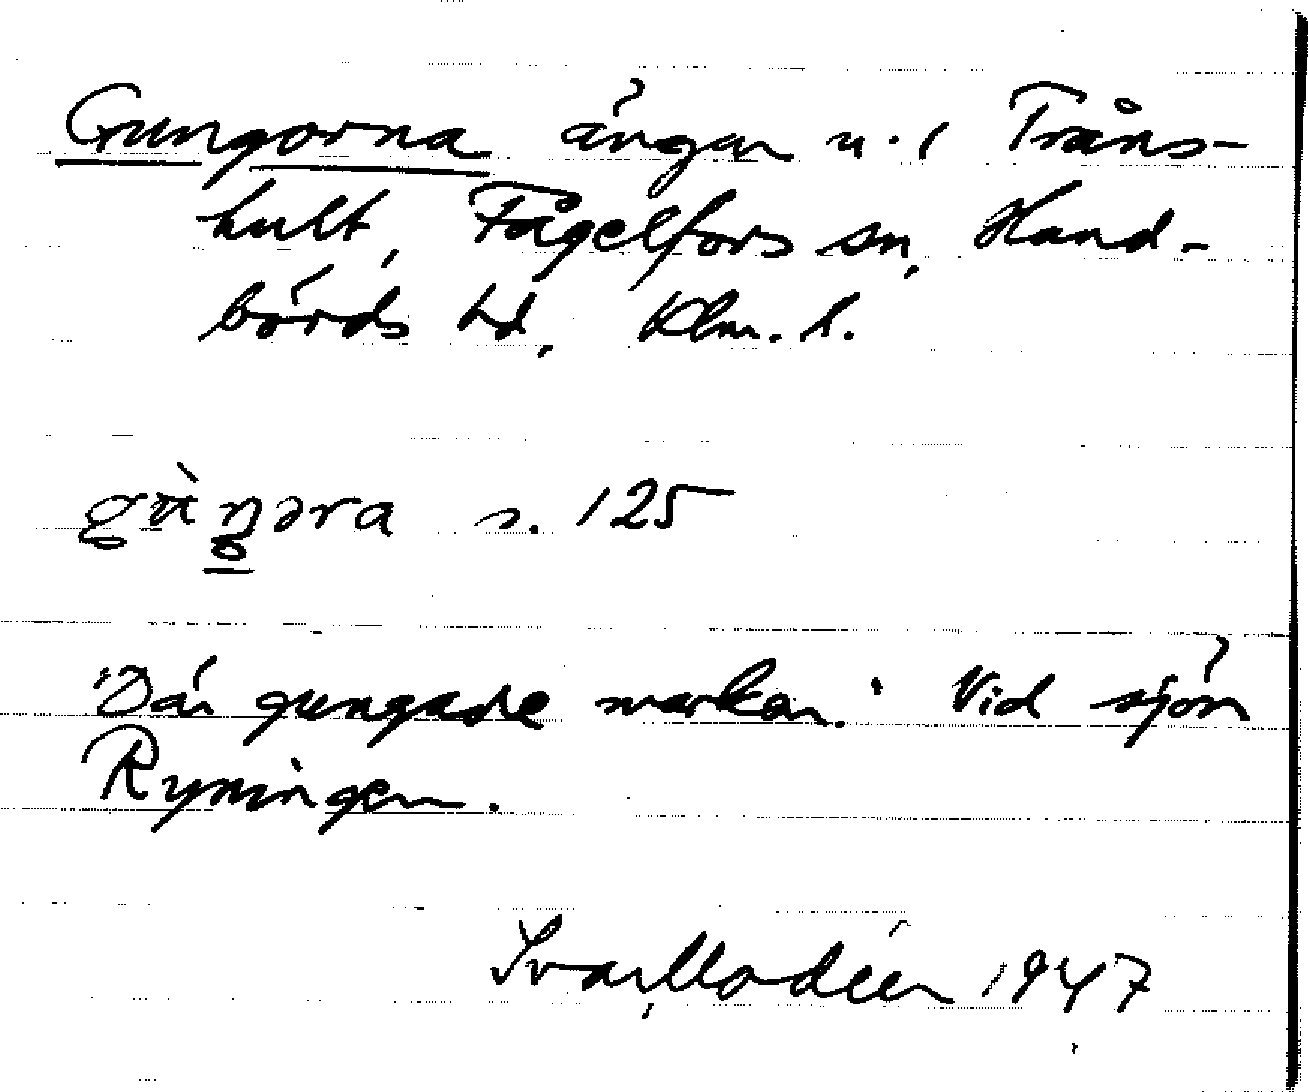 Gungorna ängar u. 1 Tråns-
hult, Fågelfors sn, Hand-
börds hd, Klm. l.
s. 125
"Där gungade marken." Vid sjön
Ryningen.
Ivar Modéer 1947